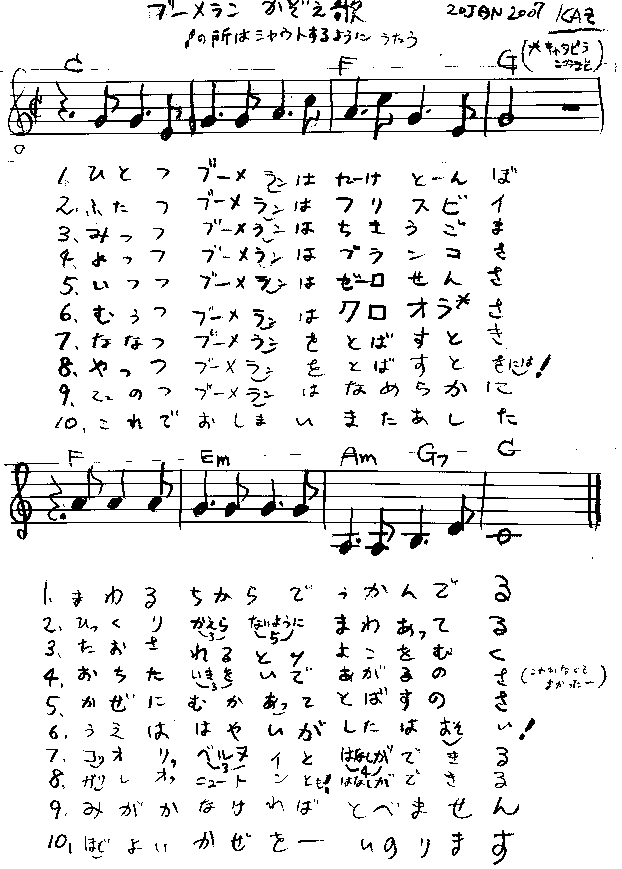 ブーメラン かぞえ歌 20JAN2007 KAZ
♪の所はシャウトするように うたう
C F G
1. ひとつ ブーメランは たーけ とーんぼ
2. ふたつ ブーメランは フリスビイ
3. みっつ ブーメランは ちきうごま
4. よっつ ブーメランは ブランコさ
5. いつつ ブーメランは ゼーロせんさ
6. むっつ ブーメランは クロオラ*さ
7. ななつ ブーメランを とばすとき
8. やっつ ブーメランを とばすときには!
9. ここのつ ブーメランは なめらかに
10. これでおしまい またあした
F Em Am G7 C
1. まわる ちからで うかんでる
2. ひっくり かえらないように まわあってる
3. たおさ れるとサ よこをむく
4. おちた いきをいで あがるのさ
5. かぜに むかあって とばすのさ
6. うえは はやいが したはおそい!
7. コッオリッ ベルヌイと はなしができる
8. ガレオッ ニュートンとも! はなしができる
9. みがかなければ とべません
10. ほどよい かぜをー いのります